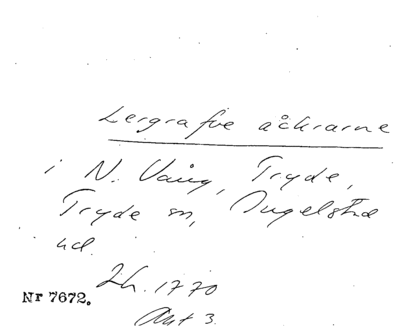 Lergrafve åckrarne
i N. Vång, Tryde,
Tryde sn, Ingelstad
hd.
Lh. 1770
Nr 7672.
Akt 3.